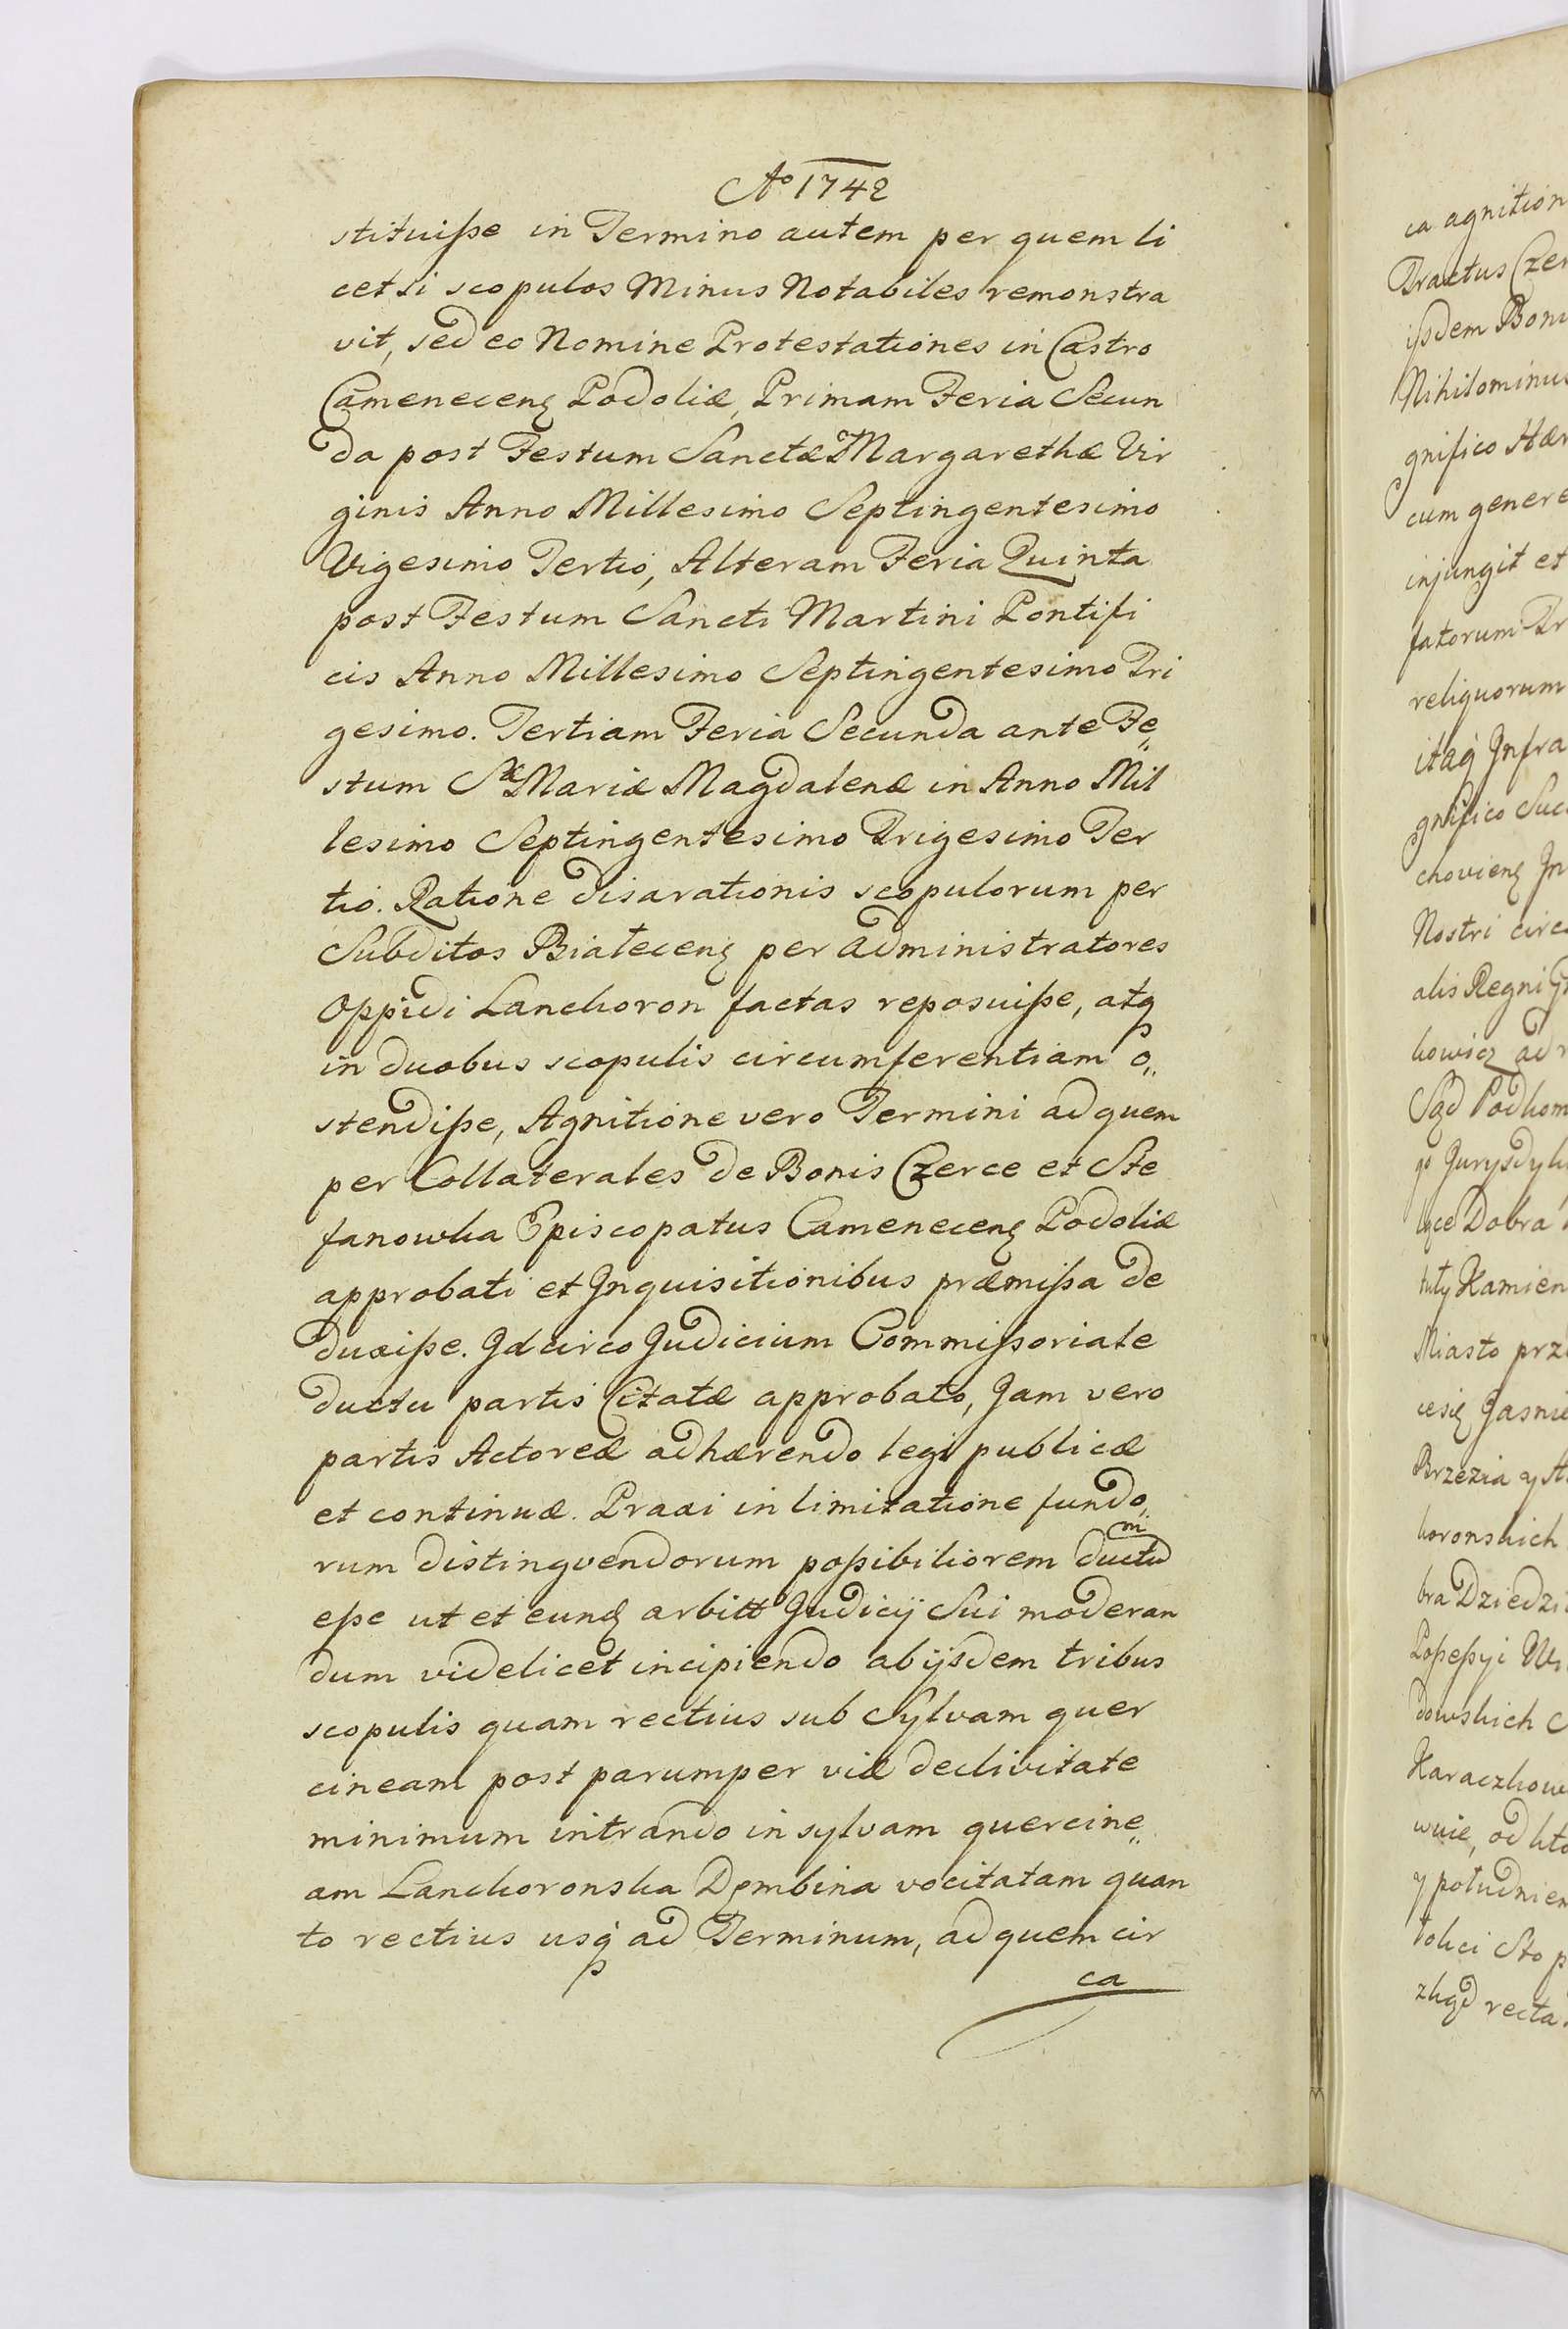 Aº 1742
stituiſse in Termino autem per quem li
cet si scopulos Minus Notabiles remonstra
vit, sed eo Nomine Protestationes in Castro
Camenecenſ Podoliæ, Primam Feria Secun
da post Festum Sanctæ Margarethæ Vir
ginis Anno Millesimo Septingentesimo
Vigesimo Tertio, Alteram Feria Quinta
post Festum Sancti Martini Pontifi
cis Anno Millesimo Septingentesimo Tri
gesimo. Tertiam Feria Secunda ante Fe„
stum Sæ Mariæ Magdalenæ in Anno Mil
lesimo Septingentesimo Trigesimo Ter
tio. Ratione disarationis scopulorum per
Subditos Białecenſ per administratores
Oppidi Lanckoron factas reposuiſse, atq
in duobus scopulis circumferentiam o„
stendiſse, Agnitione vero Termini ad quem
per Collaterales de Bonis Czerce et Ste
fanowka Episcopatus Camenecenſ Podoliæ
approbati et Inquisitionibus præmiſsa de
duxiſse. Idcirco Judicium Commiſsoriale
ductu partis Citatæ approbato, Jam vero
partis Actoreæ adhærendo legi publicæ
et continuæ. Praxi in limitatione fundo„
rum distingvendorum poſsibiliorem ductum
eſse ut et eund arbitt Judicij Sui moderan
dum videlicet incipiendo ab ijsdem tribus
scopulis quam rectius sub Sylvam quer
cineam post parumper viæ declivitate
minimum intrando in sylvam quercine„
am Lanckoronska Dembina vocitatam quan
to rectius usq ad Terminum, ad quem cir
ca
ca agnition
Tractus Czer
ijsdem Boni
Nihilominus
gnifico Hær
cum genere
injungit et
fatorum Tr
reliquorum
itaq Infra
gnifico Suc
chovienſ In
Nostri circa
alis Regni
kowicz ad
Sąd Podkom
go Jurysdyk
Dobra
Kamien
Miasto prze
Jasnie
Brzezia y
koronskich
bra Dziedzi
Poſseſsyi
dowskich
Karaczkow
wuie, od kto
y południem
tolici Sto p
recta